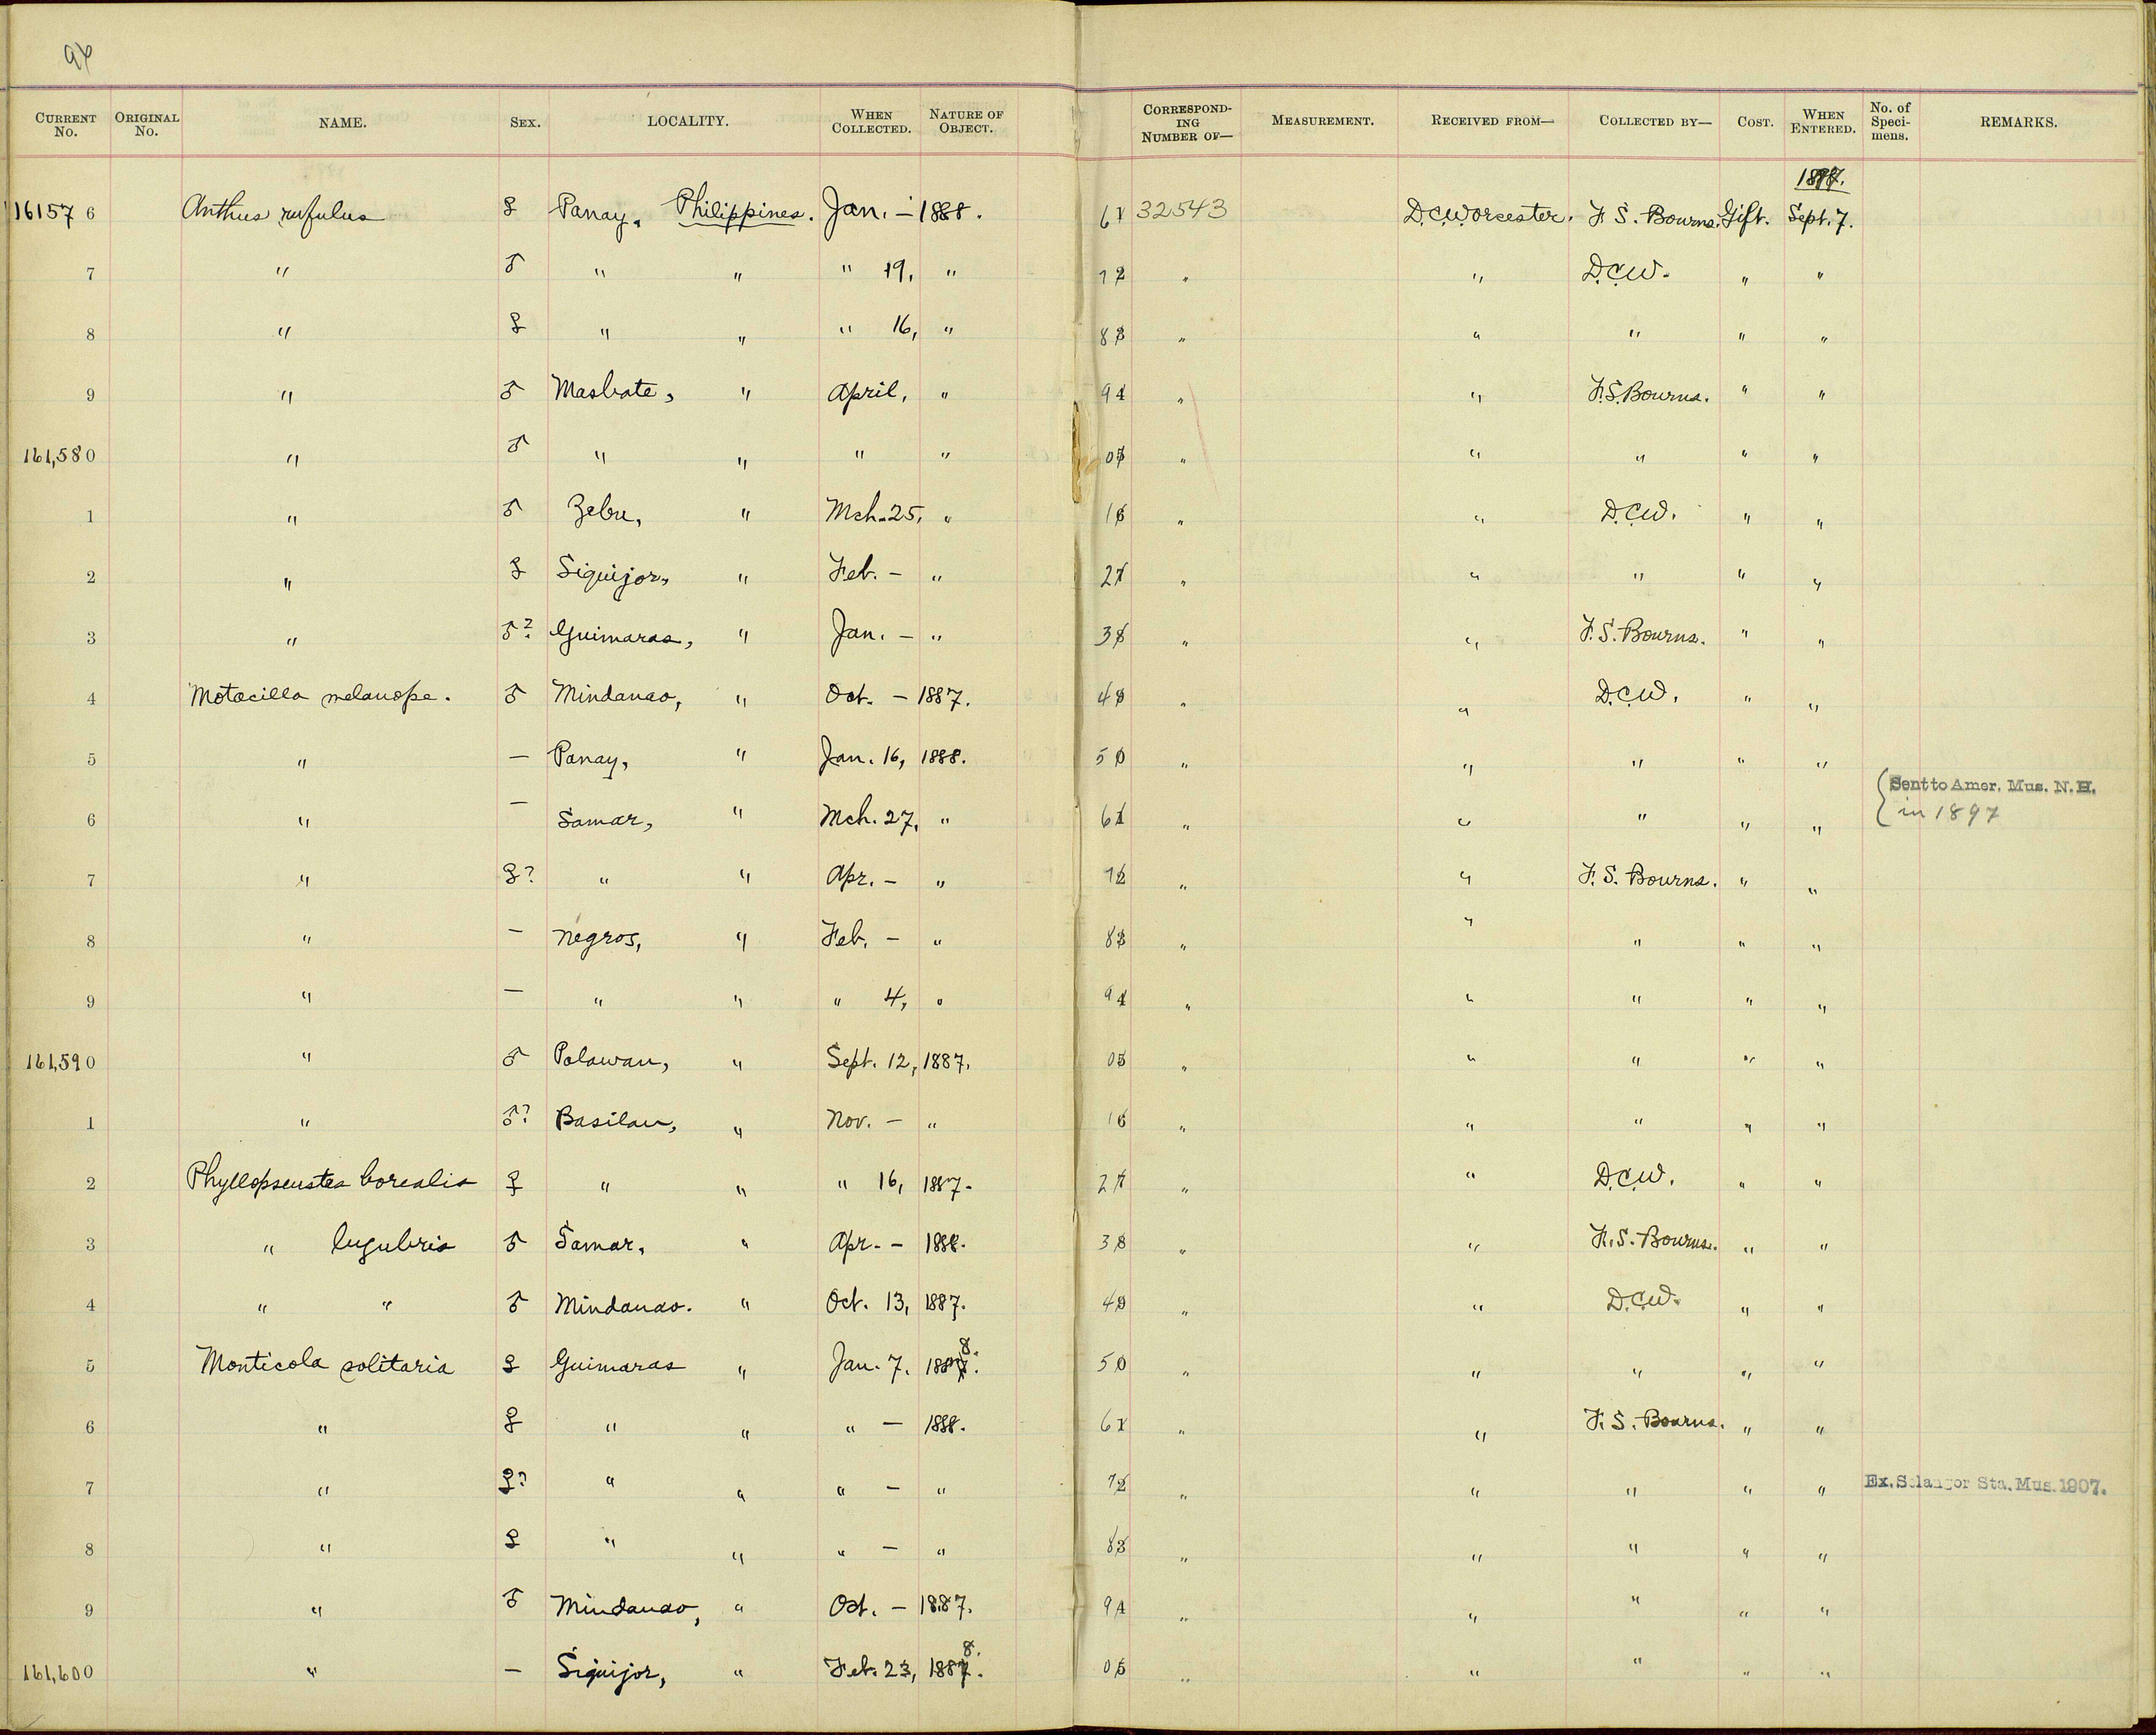 96
CURRENT No. ORIGINAL No. NAME. SEX. LOCALITY. WHEN COLLECTED. NATURE OF OBJECT. CORRESPONDING NUMBER OF— MEASUREMENT. RECEIVED FROM— COLLECTED BY— COST. WHEN ENTERED. No. of Specimens. REMARKS.
1897.
16157 6 Anthus rufulus ♀ Panay, Philippines. Jan. – 1888. 6 32543 D.C. Worcester. F. S. Bourns. Gift. Sept. 7.
7 " ♂ " " " 19, " 7 " " D.C.W. " "
8 " ♀ " " " 16, " 8 " " " " "
9 " ♂ Masbate, " April, " 9 " " F.S. Bourns. " "
161,580 " ♂ " " " " 0 " " " " "
1 " ♂ Zebu, " Mch. 25, " 1 " " D.C.W. " "
2 " ♀ Siquijor, " Feb. – " 2 " " " " "
3 " ♂? Guimaras, " Jan. – " 3 " " F. S. Bourns. " "
4 Motacilla melanope. ♂ Mindanao, " Oct. – 1887. 4 " " D.C.W. " "
5 " – Panay, " Jan. 16, 1888. 5 " " " " "
6 " – Samar, " Mch. 27, " 6 " " " " " Sent to Amer. Mus. N. H.
in 1897
7 " ♀? " " Apr. – " 7 " " F. S. Bourns. " "
8 " – Negros, " Feb. – " 8 " " " " "
9 " – " " " 4, " 9 " " " " "
161,590 " ♂ Palawan, " Sept. 12, 1887. 0 " " " " "
1 " ♂? Basilan, " Nov. – " 1 " " " " "
2 Phyllopseustes borealis ♀ " " " 16, 1887. 2 " " D.C.W. " "
3 " lugubris ♂ Samar, " Apr. – 1888. 3 " " F. S. Bourns. " "
4 " " ♂ Mindanao. " Oct. 13, 1887. 4 " " D.C.W. " "
5 Monticola solitaria ♀ Guimaras " Jan. 7. 1888. 5 " " " " "
6 " ♀ " " " – 1888. 6 " " F. S. Bourns. " "
7 " ♀? " " " – " 7 " " " " " Ex. Selangor Sta. Mus. 1907.
8 " ♀ " " " – " 8 " " " " "
9 " ♂ Mindanao, " Oct. – 1887. 9 " " " " "
161,600 " – Siquijor, " Feb. 23, 1888. 0 " " " " "